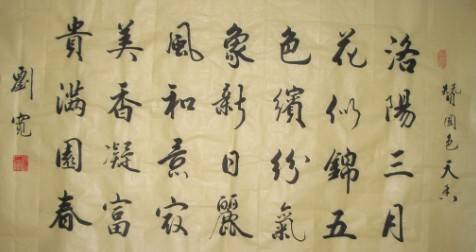 贊國色天香
洛陽三月
花似錦五
色繽紛氣
象新日麗
風和景寂
美香凝富
貴滿園春
劉寬